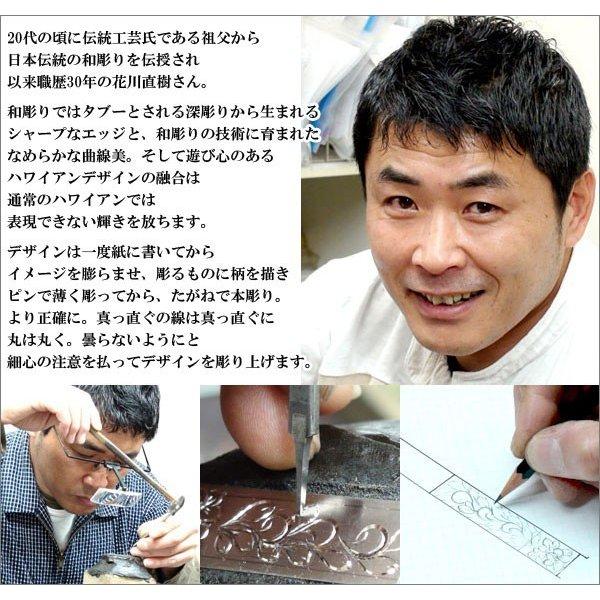 20代の頃に伝統工芸氏である祖父から
日本伝統の和彫りを伝授され
以来職歴30年の花川直樹さん。
和彫りではタブーとされる深彫りから生まれる
シャープなエッジと、和彫りの技術に育まれた
なめらかな曲線美。そして遊び心のある
ハワイアンデザインの融合は
通常のハワイアンでは
表現できない輝きを放ちます。
デザインは一度紙に書いてから
イメージを膨らませ、彫るものに柄を描き
ピンで薄く彫ってから、たがねで本彫り。
より正確に。真っ直ぐの線は真っ直ぐに
丸は丸く。曇らないようにと
細心の注意を払ってデザインを彫り上げます。